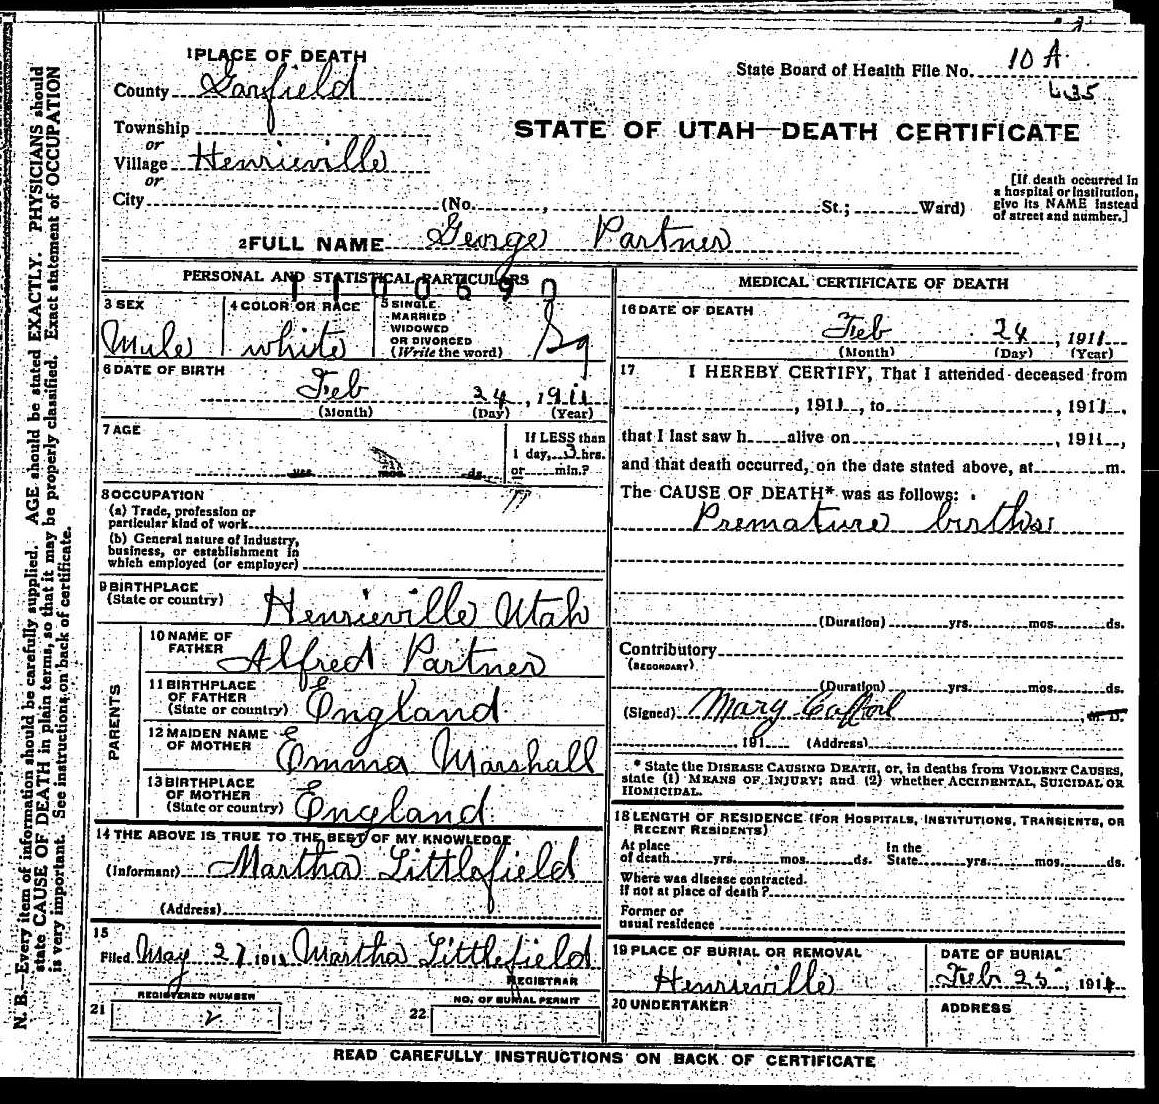 1 PLACE OF DEATH
County Garfield
Township
or
Village Henrieville
or
City (No. , St.; Ward)
State Board of Health File No. 10 A
435
STATE OF UTAH—DEATH CERTIFICATE
[If death occurred in
a hospital or institution,
give its NAME instead
of street and number.]
2 FULL NAME George Partner
PERSONAL AND STATISTICAL PARTICULARS
1100690
3 SEX
Male
4 COLOR OR RACE
white
5 SINGLE
MARRIED
WIDOWED
OR DIVORCED
(Write the word)
Sg
6 DATE OF BIRTH
Feb 24, 1911
(Month) (Day) (Year)
7 AGE
yrs. mos. ds.
If LESS than
1 day, 3 hrs.
or min.?
8 OCCUPATION
(a) Trade, profession or
particular kind of work
(b) General nature of industry,
business, or establishment in
which employed (or employer)
9 BIRTHPLACE
(State or country) Henrieville Utah
PARENTS
10 NAME OF
FATHER Alfred Partner
11 BIRTHPLACE
OF FATHER
(State or country) England
12 MAIDEN NAME
OF MOTHER Emma Marshall
13 BIRTHPLACE
OF MOTHER
(State or country) England
14 THE ABOVE IS TRUE TO THE BEST OF MY KNOWLEDGE
(Informant) Martha Littlefield
(Address)
15
Filed May 27 1911 Martha Littlefield
REGISTRAR
21 REGISTERED NUMBER
2
22 NO. OF BURIAL PERMIT
MEDICAL CERTIFICATE OF DEATH
16 DATE OF DEATH
Feb 24, 1911
(Month) (Day) (Year)
17 I HEREBY CERTIFY, That I attended deceased from
, 1911, to , 1911,
that I last saw h alive on , 1911,
and that death occurred, on the date stated above, at m.
The CAUSE OF DEATH* was as follows:
Premature births
(Duration) yrs. mos. ds.
Contributory
(SECONDARY)
(Duration) yrs. mos. ds.
(Signed) Mary , M. D.
191 (Address)
* State the DISEASE CAUSING DEATH, or, in deaths from VIOLENT CAUSES,
state (1) MEANS OF INJURY; and (2) whether ACCIDENTAL, SUICIDAL OR
HOMICIDAL.
18 LENGTH OF RESIDENCE (FOR HOSPITALS, INSTITUTIONS, TRANSIENTS, OR
RECENT RESIDENTS)
At place
of death yrs. mos. ds.
In the
State yrs. mos. ds.
Where was disease contracted.
If not at place of death?
Former or
usual residence
19 PLACE OF BURIAL OR REMOVAL
Henrieville
DATE OF BURIAL
Feb 25, 1911
20 UNDERTAKER
ADDRESS
READ CAREFULLY INSTRUCTIONS ON BACK OF CERTIFICATE
N. B.—Every item of information should be carefully supplied. AGE should be stated EXACTLY. PHYSICIANS should
state CAUSE OF DEATH in plain terms, so that it may be properly classified. Exact statement of OCCUPATION
is very important. See instructions on back of certificate.